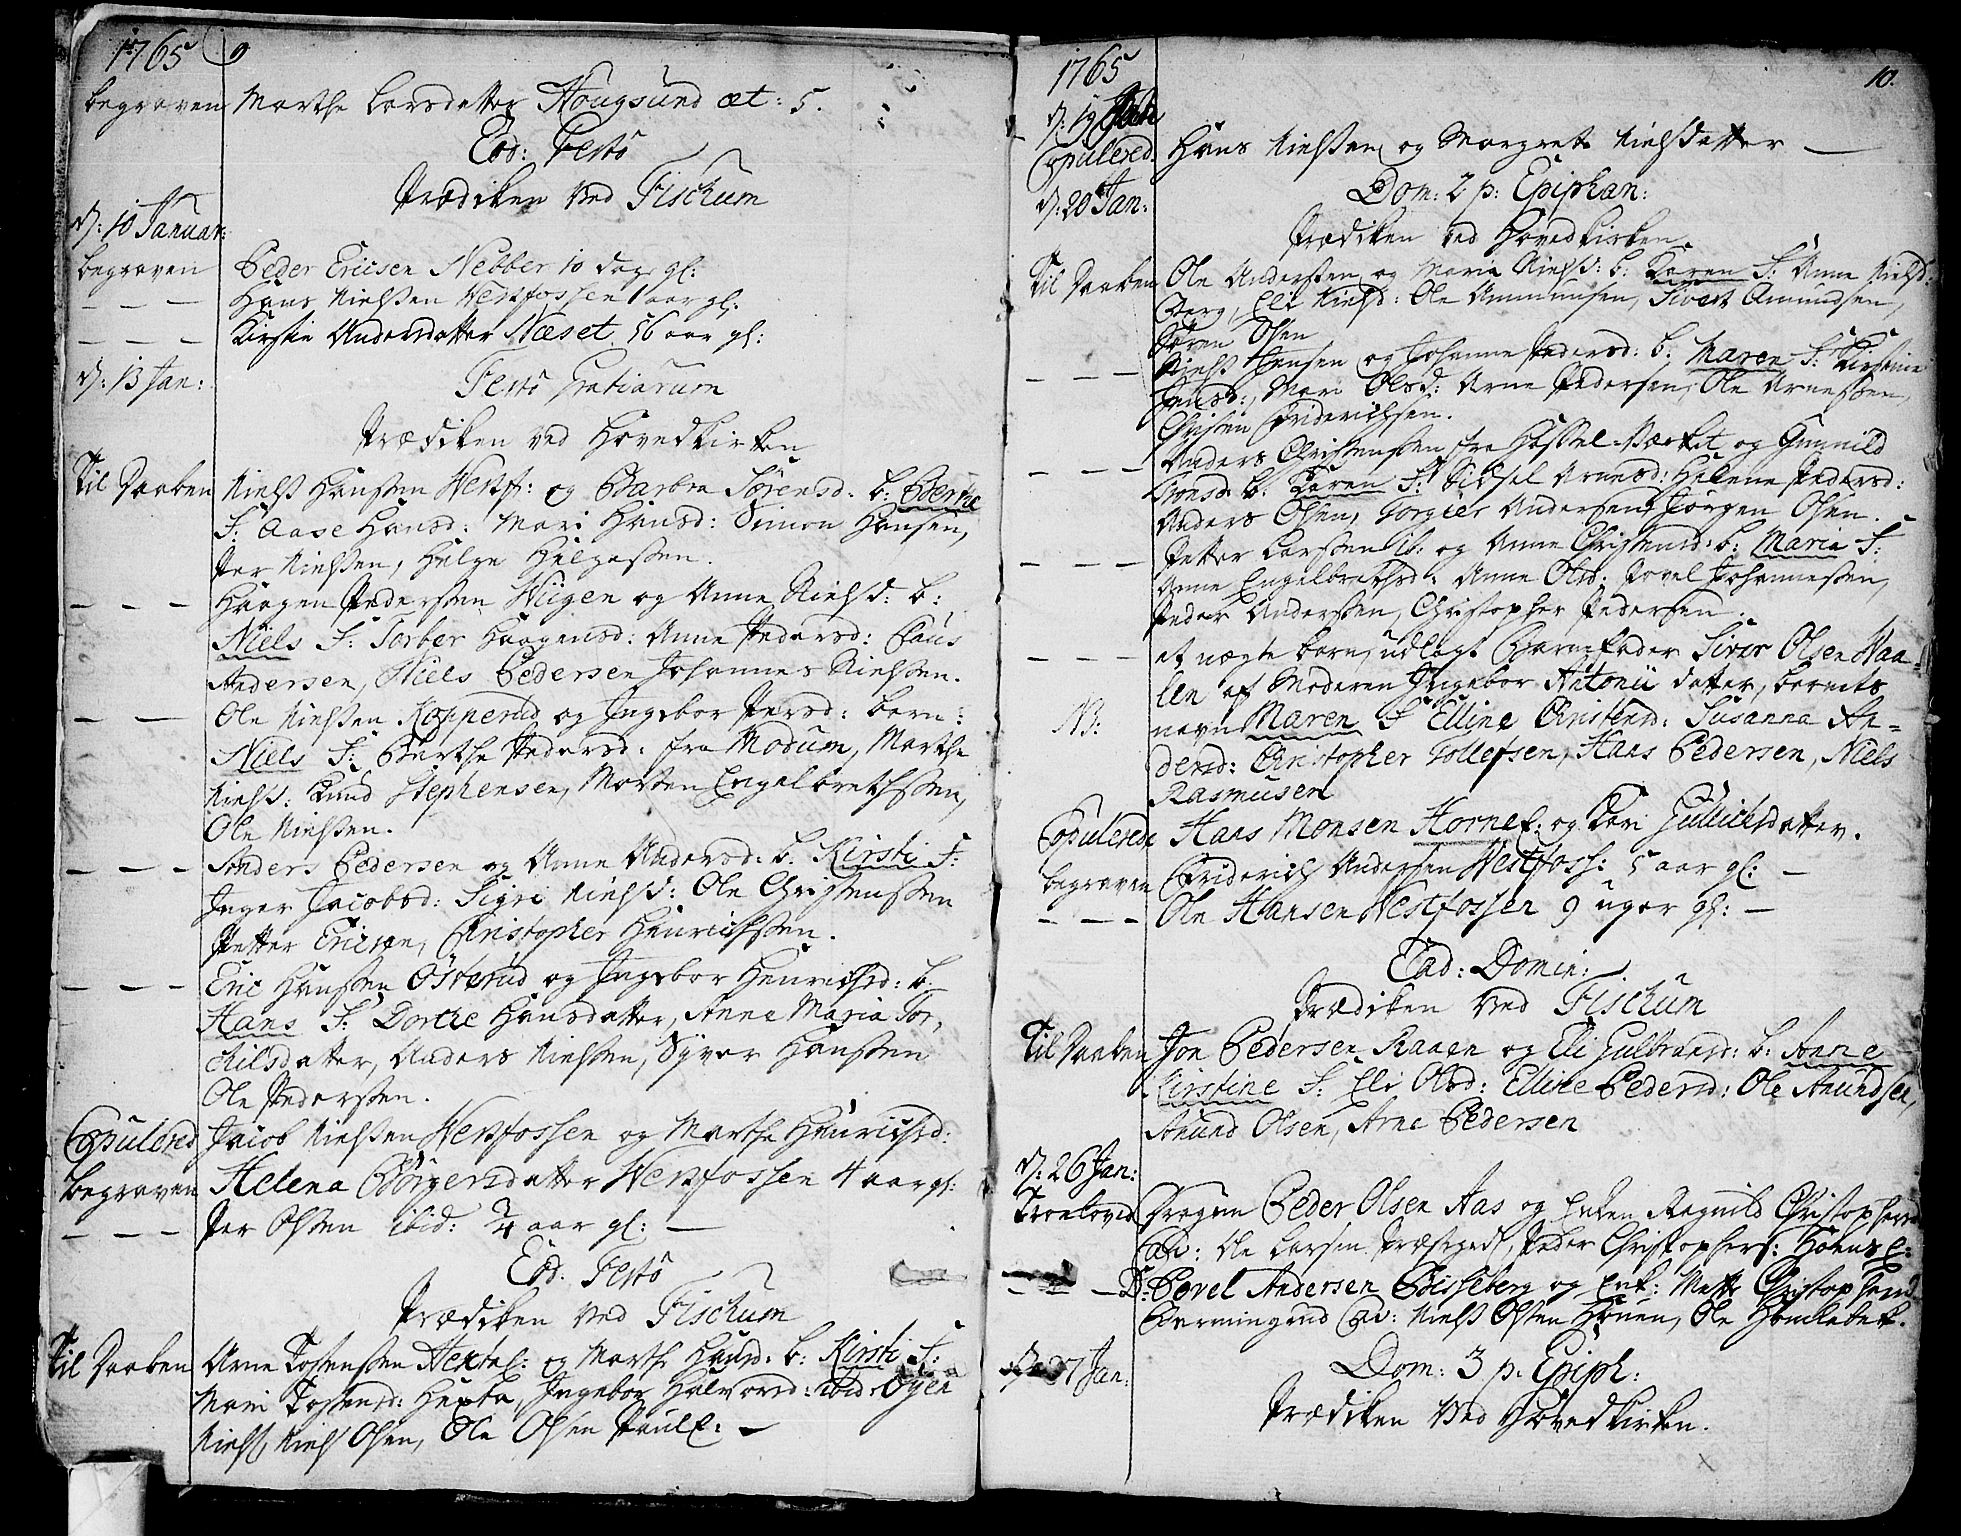 1765 9
begraven Marthe Larsdatter Hougsund æt: 5.
Eod: Festô
Prædiken ved Fischum
d: 10 Januar:
begraven Peder Ericsen Nebber 10 dage gl:
— — Hans Nielsen Westfossen 1 aar gl:
— — — Kirstie Andersdatter Næset 56 aar gl:
d: 13 Jan: Festô Gratiarum
Prædiken ved Hovedkirken
Til Daaben Niels Hansen Westf: og Barbra Sörensd: b: Berthe
F: Aase Hansd: Mari Hansd: Simon Hansen,
Per Nielsen, Helge Helgesen.
— — — Haagen Pedersen Wiigen og Anne Nielsd: b:
Niels F: Torber Haagensd: Anne Pedersd: Claus
Andersen, Niels Pedersen Johannes Nielsen.
— — Ole Nielsen Kopperud og Ingebor Persd: barn:
Niels F: Berthe Pedersd: fra Modum, Marthe
Nielsd: Knud Stephensen, Morten Engelbrethsen,
Ole Nielsen.
— — — Anders Pedersen og Anne Andersd: b. Kirsti F:
Inger Jacobsd: Sigri Nielsd: Ole Christensen
Petter Ericsen, Christopher Henrichsen.
— — — Eric Hansen Österud og Ingebor Henrichsd: b.
Hans F: Dorthe Hansdatter, Anne Maria Tor,
kilsdatter, Anders Nielsen, Syver Hansen
Ole Pedersen.
Copulered Jacob Nielsen Westfossen og Marthe Henrichsd:
begraven Helena Börgersdatter Westfossen 4 aar gl:
— — — Per Olsen ibid: 3/4 aar gl: —
Eod. Festô
Prædiken ved Fischum
Til Daaben Arne Tostensen Hexta: og Marthe Hansd: b: Kirsti F:
Mari Tostensd: Hexta, Ingebor Halvorsd: ibid: Öyen
Niels Olsen, Ole Olsen
1765 10.
d: 19 Jan
Copulered. Hans Nielsen og Margrete Nielsdatter —
d: 20 Jan: Dom: 2 p: Epiphan:
Prædiken ved Hovedkirken
Til Daaben Ole Andersen og Maria Nielsd: b: Karen F: Anne Nielsd:
Berg, Eli Nielsd: Ole Ammunsen, Sivert Amundsen,
Sören Olsen
— — — Niels Jensen og Johanne Pedersd: b: Maren F: Kirstine
Jensd:, Mari Olsd: Arne Pedersen, Ole Arnesen,
Christen Friderichsen.
— — — Anders Christensen fra Hassel-Værket og Gunnild
b. Karen F: Sidsel Arnesd: Helene Pedersd:
Anders Olsen, Torgier Andersen Jörgen Olsen.
— — — Petter Larsen ib: og Anne Christensd: b: Maria F:
Anne Engelbrethsd: Anne Olsd: Povel Johannesen,
Peder Andersen, Christopher Pedersen.
— — — et uægte barn, udlagt Barnefader Siver Olsen Waa-
len af Moderen Ingebor Antonii datter, barnets
NB: navn Maren F Elline Christensd: Susanna An-
dersd: Christopher Tollefsen, Hans Pedersen, Niels
Rasmusen
Copulerede Hans Monsen Horne: og Kari Gullichsdatter.
begraven Friderich Andersen Westfoss: 5 aar gl: —
— — — Ole Hansen Westfossen 9 uger gl: —
Eod: Domin:
Prædiken ved Fischum
Til Daaben Jon Pedersen Raaen og Eli Gulbrandsd: b: Anne
Kirstine F: Eli Olsd: Elline Pedersd: Ole Anundsen,
Anund Olsen, Arne Pedersen
d: 26 Jan:
Troelovede Drogen Peder Olsen Aas og Enken Ragnild Christophersd
Cav: Ole Larsen Præstegd, Peder Christophers: Hoens E:
— — D: Povel Andersen Bisseberg og Enk: Mette Christophersd
Cav: Niels Olsen Houen, Ole Homlebek.
D. 27 Jan: Dom: 3 p. Epiph:
Prædiken ved Hovedkirken.